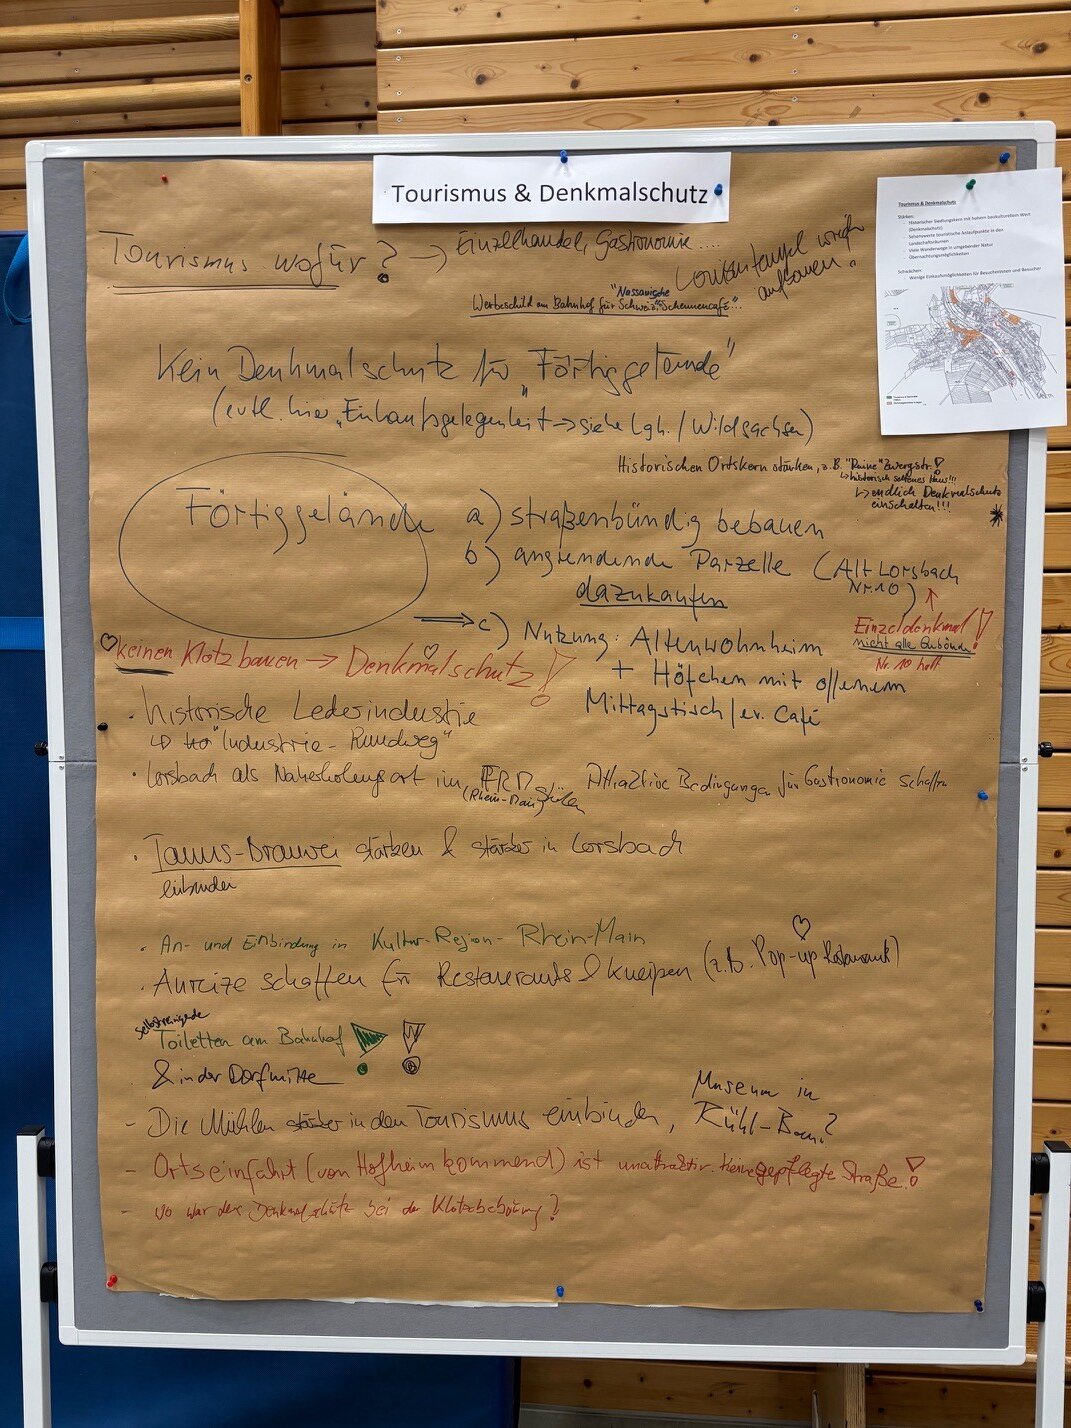 Tourismus & Denkmalschutz
Tourismus & Denkmalschutz
Stärken:
- Historischer Siedlungskern mit hohem baukulturellem Wert
(Denkmalschutz)
- Sehenswerte touristische Anlaufpunkte in den
Landschaftsräumen
- Viele Wanderwege in umgebender Natur
- Übernachtungsmöglichkeiten
Schwächen:
- Wenige Einkaufsmöglichkeiten für Besucherinnen und Besucher
Tourismus wofür? → Einzelhandel, Gastronomie....
aufbauen!
"Nassauische
Werbeschild am Bahnhof für Schweiz, Scheunencafé"...
Kein Denkmalschutz für "Förtiggelände"
(evtl. hier "Einkaufsgelegenheit → siehe Lgh. / Wildsachsen)
Historischen Ortskern stärken, z.B. "Ruine" Zwergstr.!
↳ historisch seltenes Haus!!!
↳ endlich Denkmalschutz
einschalten!!!
Förtiggelände
a) straßenbündig bebauen
b) angrenzende Parzelle (Alt Lorsbach
Nr. 10)
dazukaufen
⇒ c) Nutzung: Altenwohnheim
+ Höfchen mit offenem
Mittagstisch / ev. Café
Einzeldenkmal!
nicht alle Gebäude!
Nr. 10 halt
♡ keinen Klotz bauen → Denkmalschutz!
· historische Lederindustrie
↳ "Industrie-Rundweg"
· Lorsbach als Naherholungsort im FRM
(Rhein-Main) stärken
Attraktive Bedingungen für Gastronomie schaffen
· Taunus-Brauerei stärken & stärker in Lorsbach
einbinden
· An- und Einbindung in Kultur-Region-Rhein-Main
· Anreize schaffen für Restaurants & Kneipen (z.B. Pop-up Restaurant) ♡
selbstreinigende
Toiletten am Bahnhof
& in der Dorfmitte
- Die Mühlen stärker in den Tourismus einbinden, Museum in
- Ortseinfahrt (von Hofheim kommend) ist unattraktiv. Keine gepflegte Straße!
- Wo war der Denkmalschutz bei der Klotzbebauung?